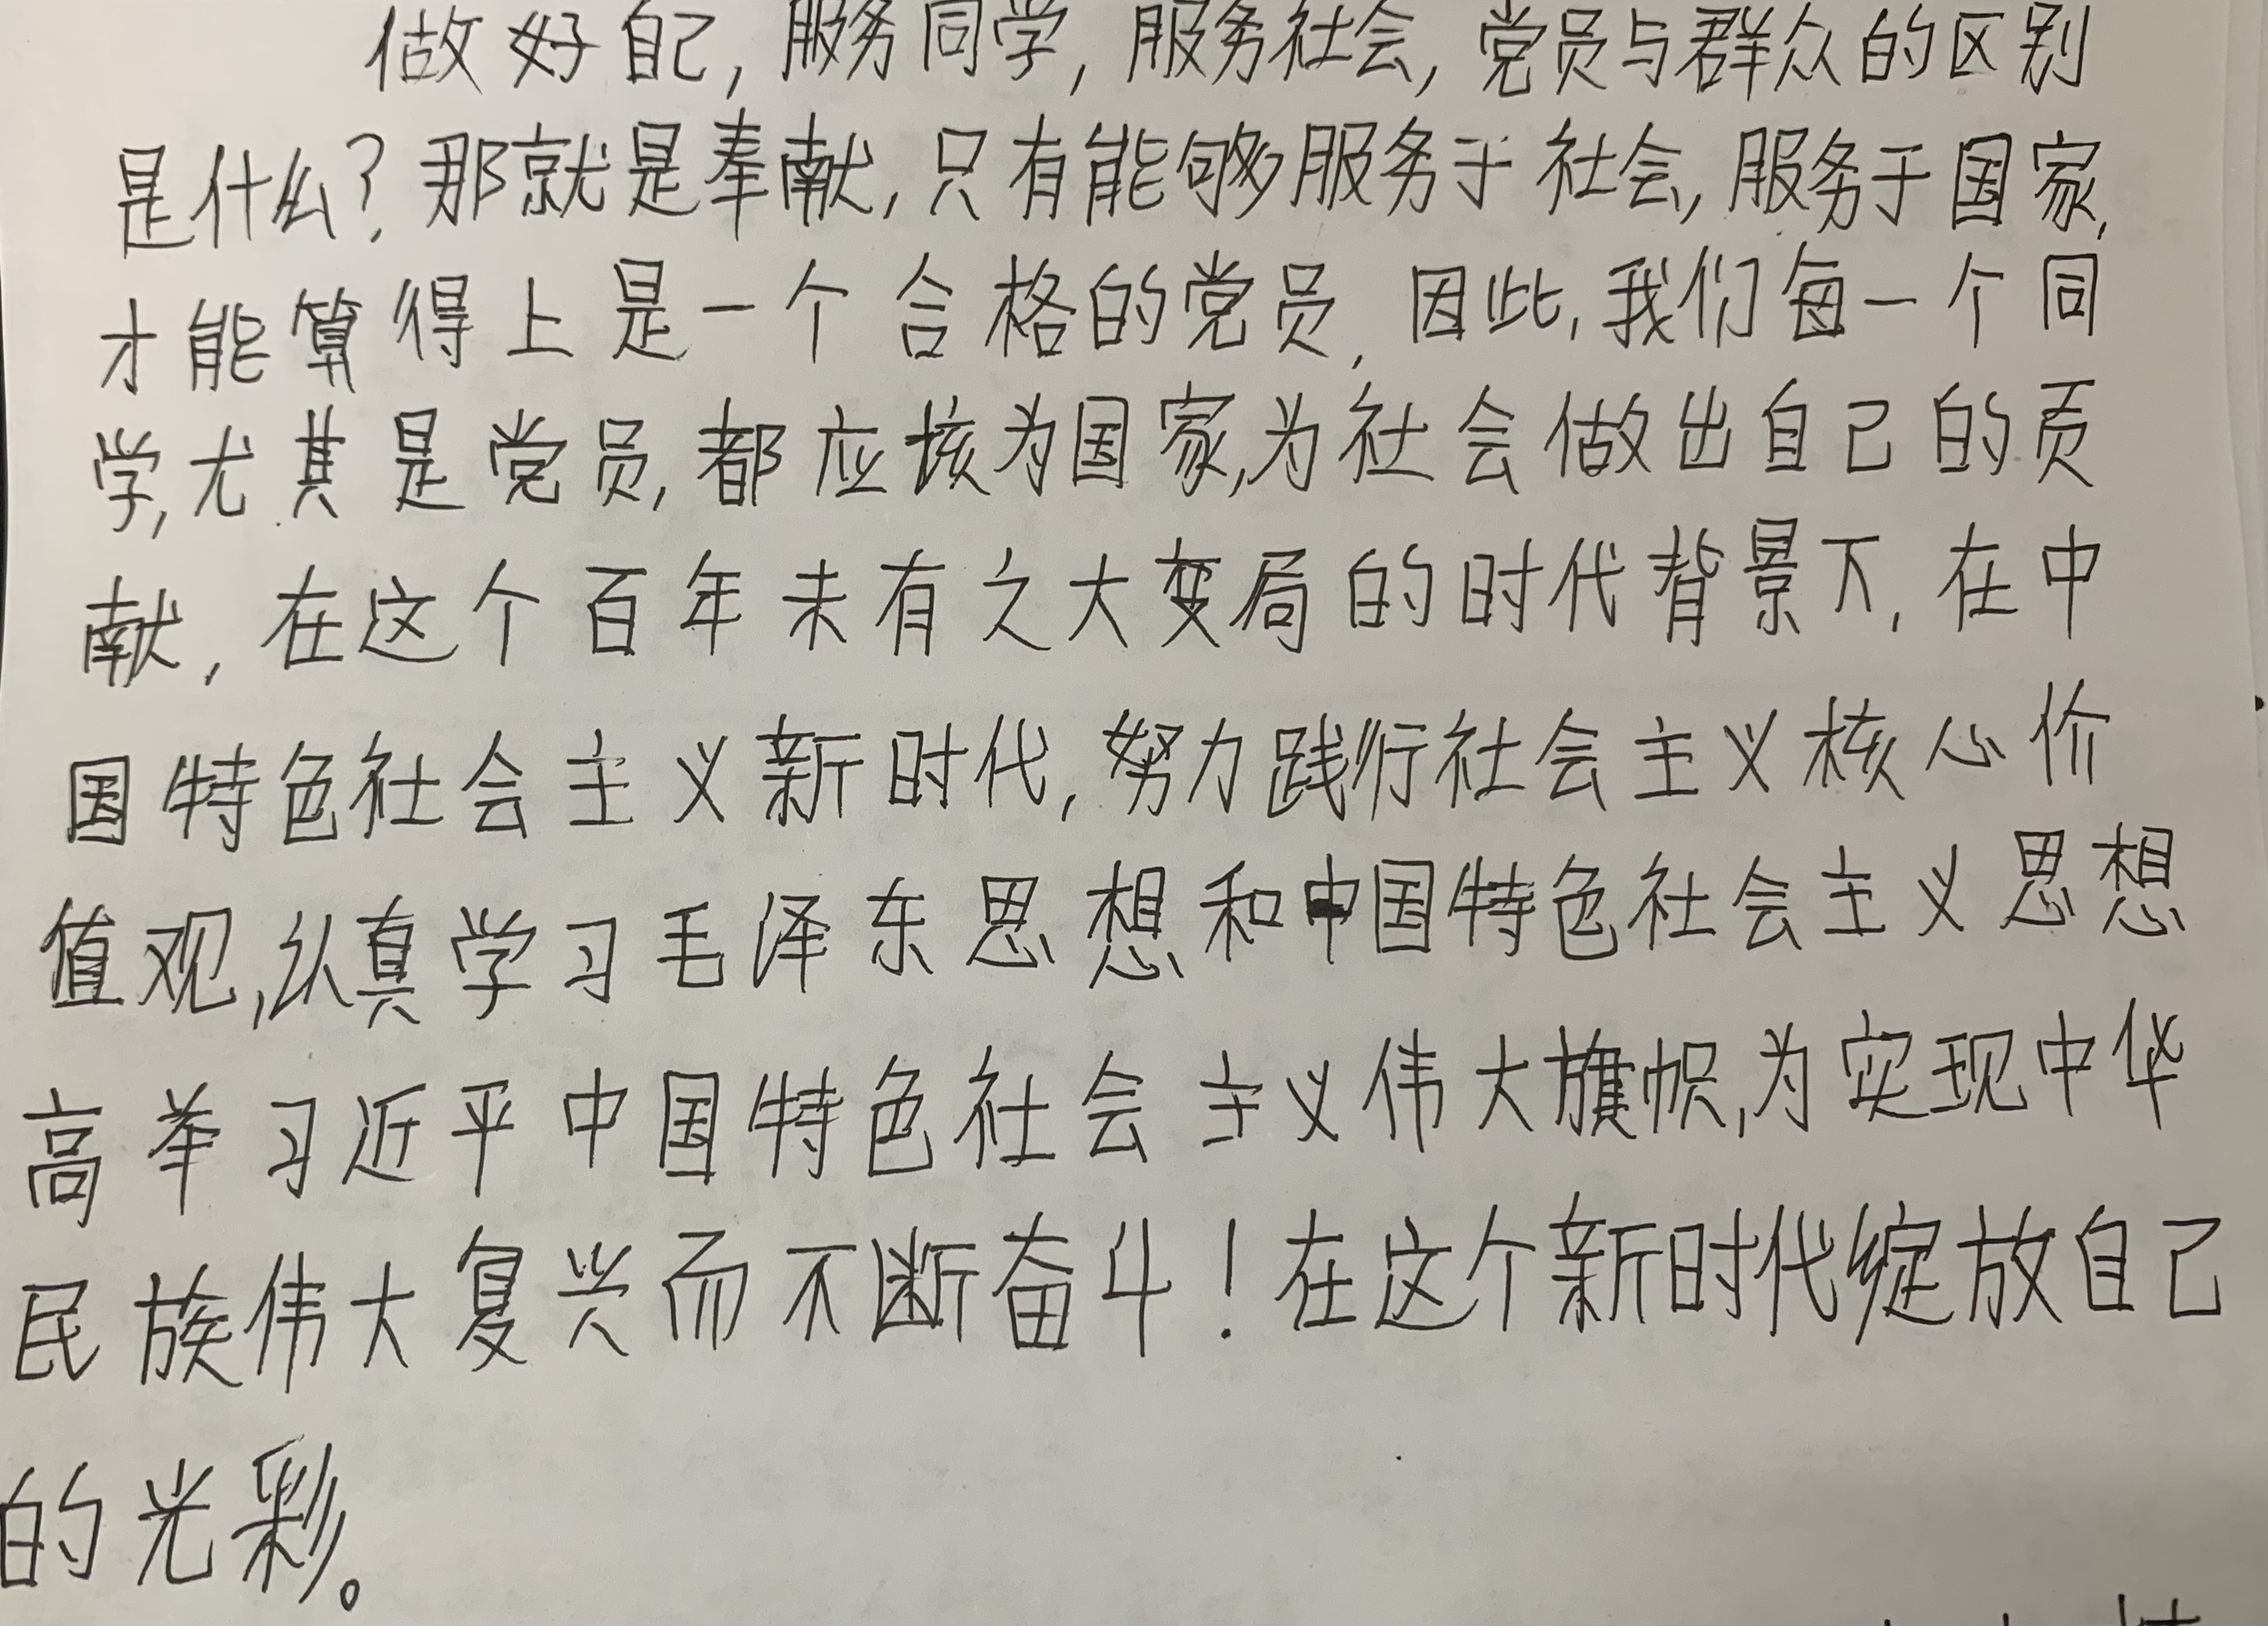 做好自己,服务同学,服务社会,党员与群众的区别
是什么?那就是奉献,只有能够服务于社会,服务于国家,
才能算得上是一个合格的党员,因此,我们每一个同
学,尤其是党员,都应该为国家,为社会做出自己的贡
献,在这个百年未有之大变局的时代背景下,在中
国特色社会主义新时代,努力践行社会主义核心价
值观,认真学习毛泽东思想和中国特色社会主义思想
高举习近平中国特色社会主义伟大旗帜,为实现中华
民族伟大复兴而不断奋斗!在这个新时代绽放自己
的光彩。